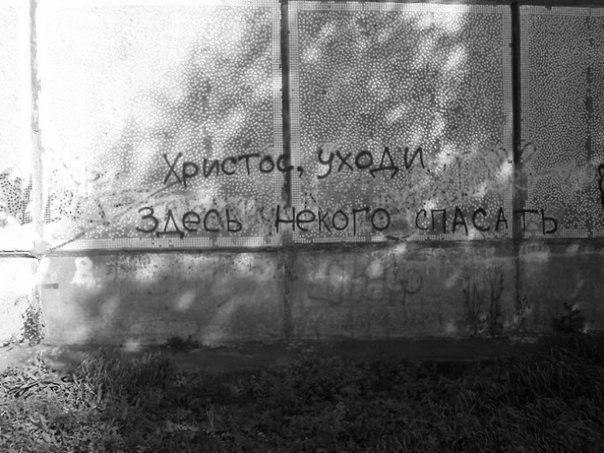 Христос, уходи
Здесь некого спасать